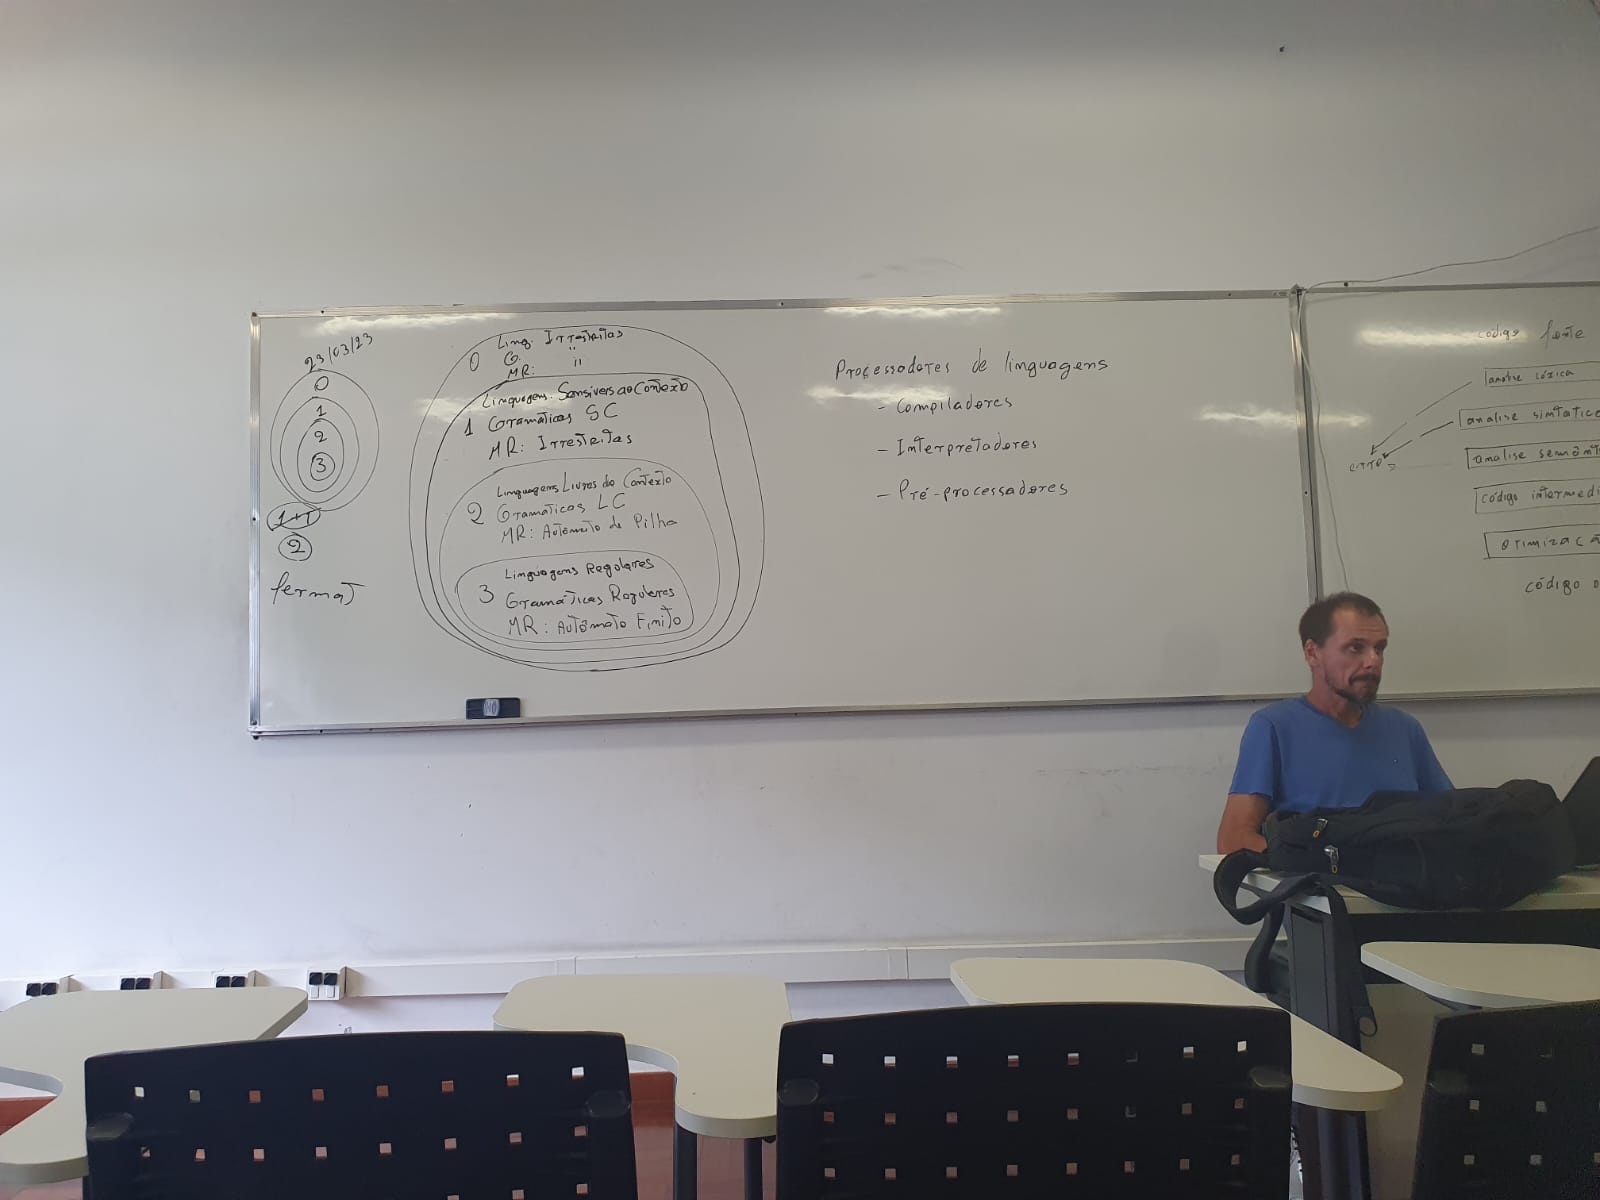 23/03/23
0
1
2
3
1+T
2
fermat
0 Ling. Irrestritas
G. "
MR: "
Linguagens Sensíveis ao Contexto
1 Gramáticas SC
MR: Irrestritas
Linguagens Livres do Contexto
2 Gramáticas LC
MR: Autômato de Pilha
Linguagens Regulares
3 Gramáticas Regulares
MR: Autômato Finito
Processadores de linguagens
- Compiladores
- Interpretadores
- Pré-processadores
código fonte
análise léxica
análise sintática
erros
análise semânt
código intermedi
otimizaçã
código o